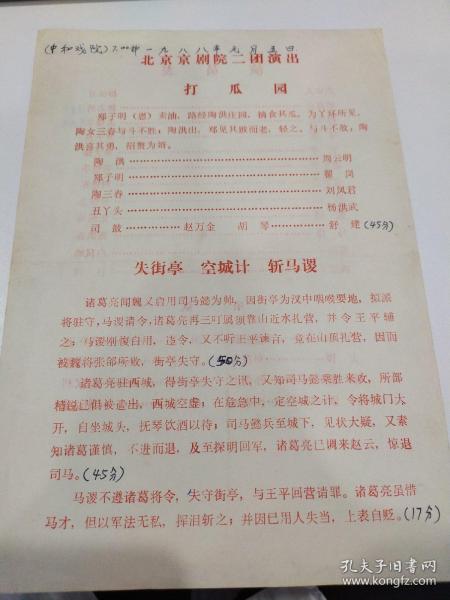 (中和戏院)7.00钟 一九八八年元月五日
北京京剧院二团演出
打瓜园
郑子明(恩)卖油，路经陶洪庄园，摘食其瓜，为丫环所见，
陶女三春与斗不胜；陶洪出，郑见其貌而老，轻之。与斗不敌；陶
洪喜其勇，招赘为婿。
陶洪……周云明
郑子明……翟岚
陶三春……刘凤君
丑丫头……杨洪武
司鼓……赵万金 胡琴……舒健(45分)
失街亭 空城计 斩马谡
诸葛亮闻魏又启用司马懿为帅，因街亭为汉中咽喉要地，拟派
将驻守，马谡请令，诸葛亮再三叮嘱须靠山近水扎营，并令王平辅
之；马谡刚愎自用，违令，又不听王平谏言，竟在山顶扎营，因而
被魏将张郃所败，街亭失守。(50分)
诸葛亮驻西城，得街亭失守之讯，又知司马懿乘胜来攻，所部
精锐已俱被遣出，西城空虚；在危急中，定空城之计。令将城门大
开，自坐城头，抚琴饮酒以待；司马懿兵至城下，见状大疑，又素
知诸葛谨慎，不进而退，及至探明回军，诸葛亮已调来赵云，惊退
司马。(45分)
马谡不遵诸葛将令，失守街亭，与王平回营请罪。诸葛亮虽惜
马才，但以军法无私，挥泪斩之；并因已用人失当，上表自贬。(17分)
孔夫子旧书网
www.kongfz.com